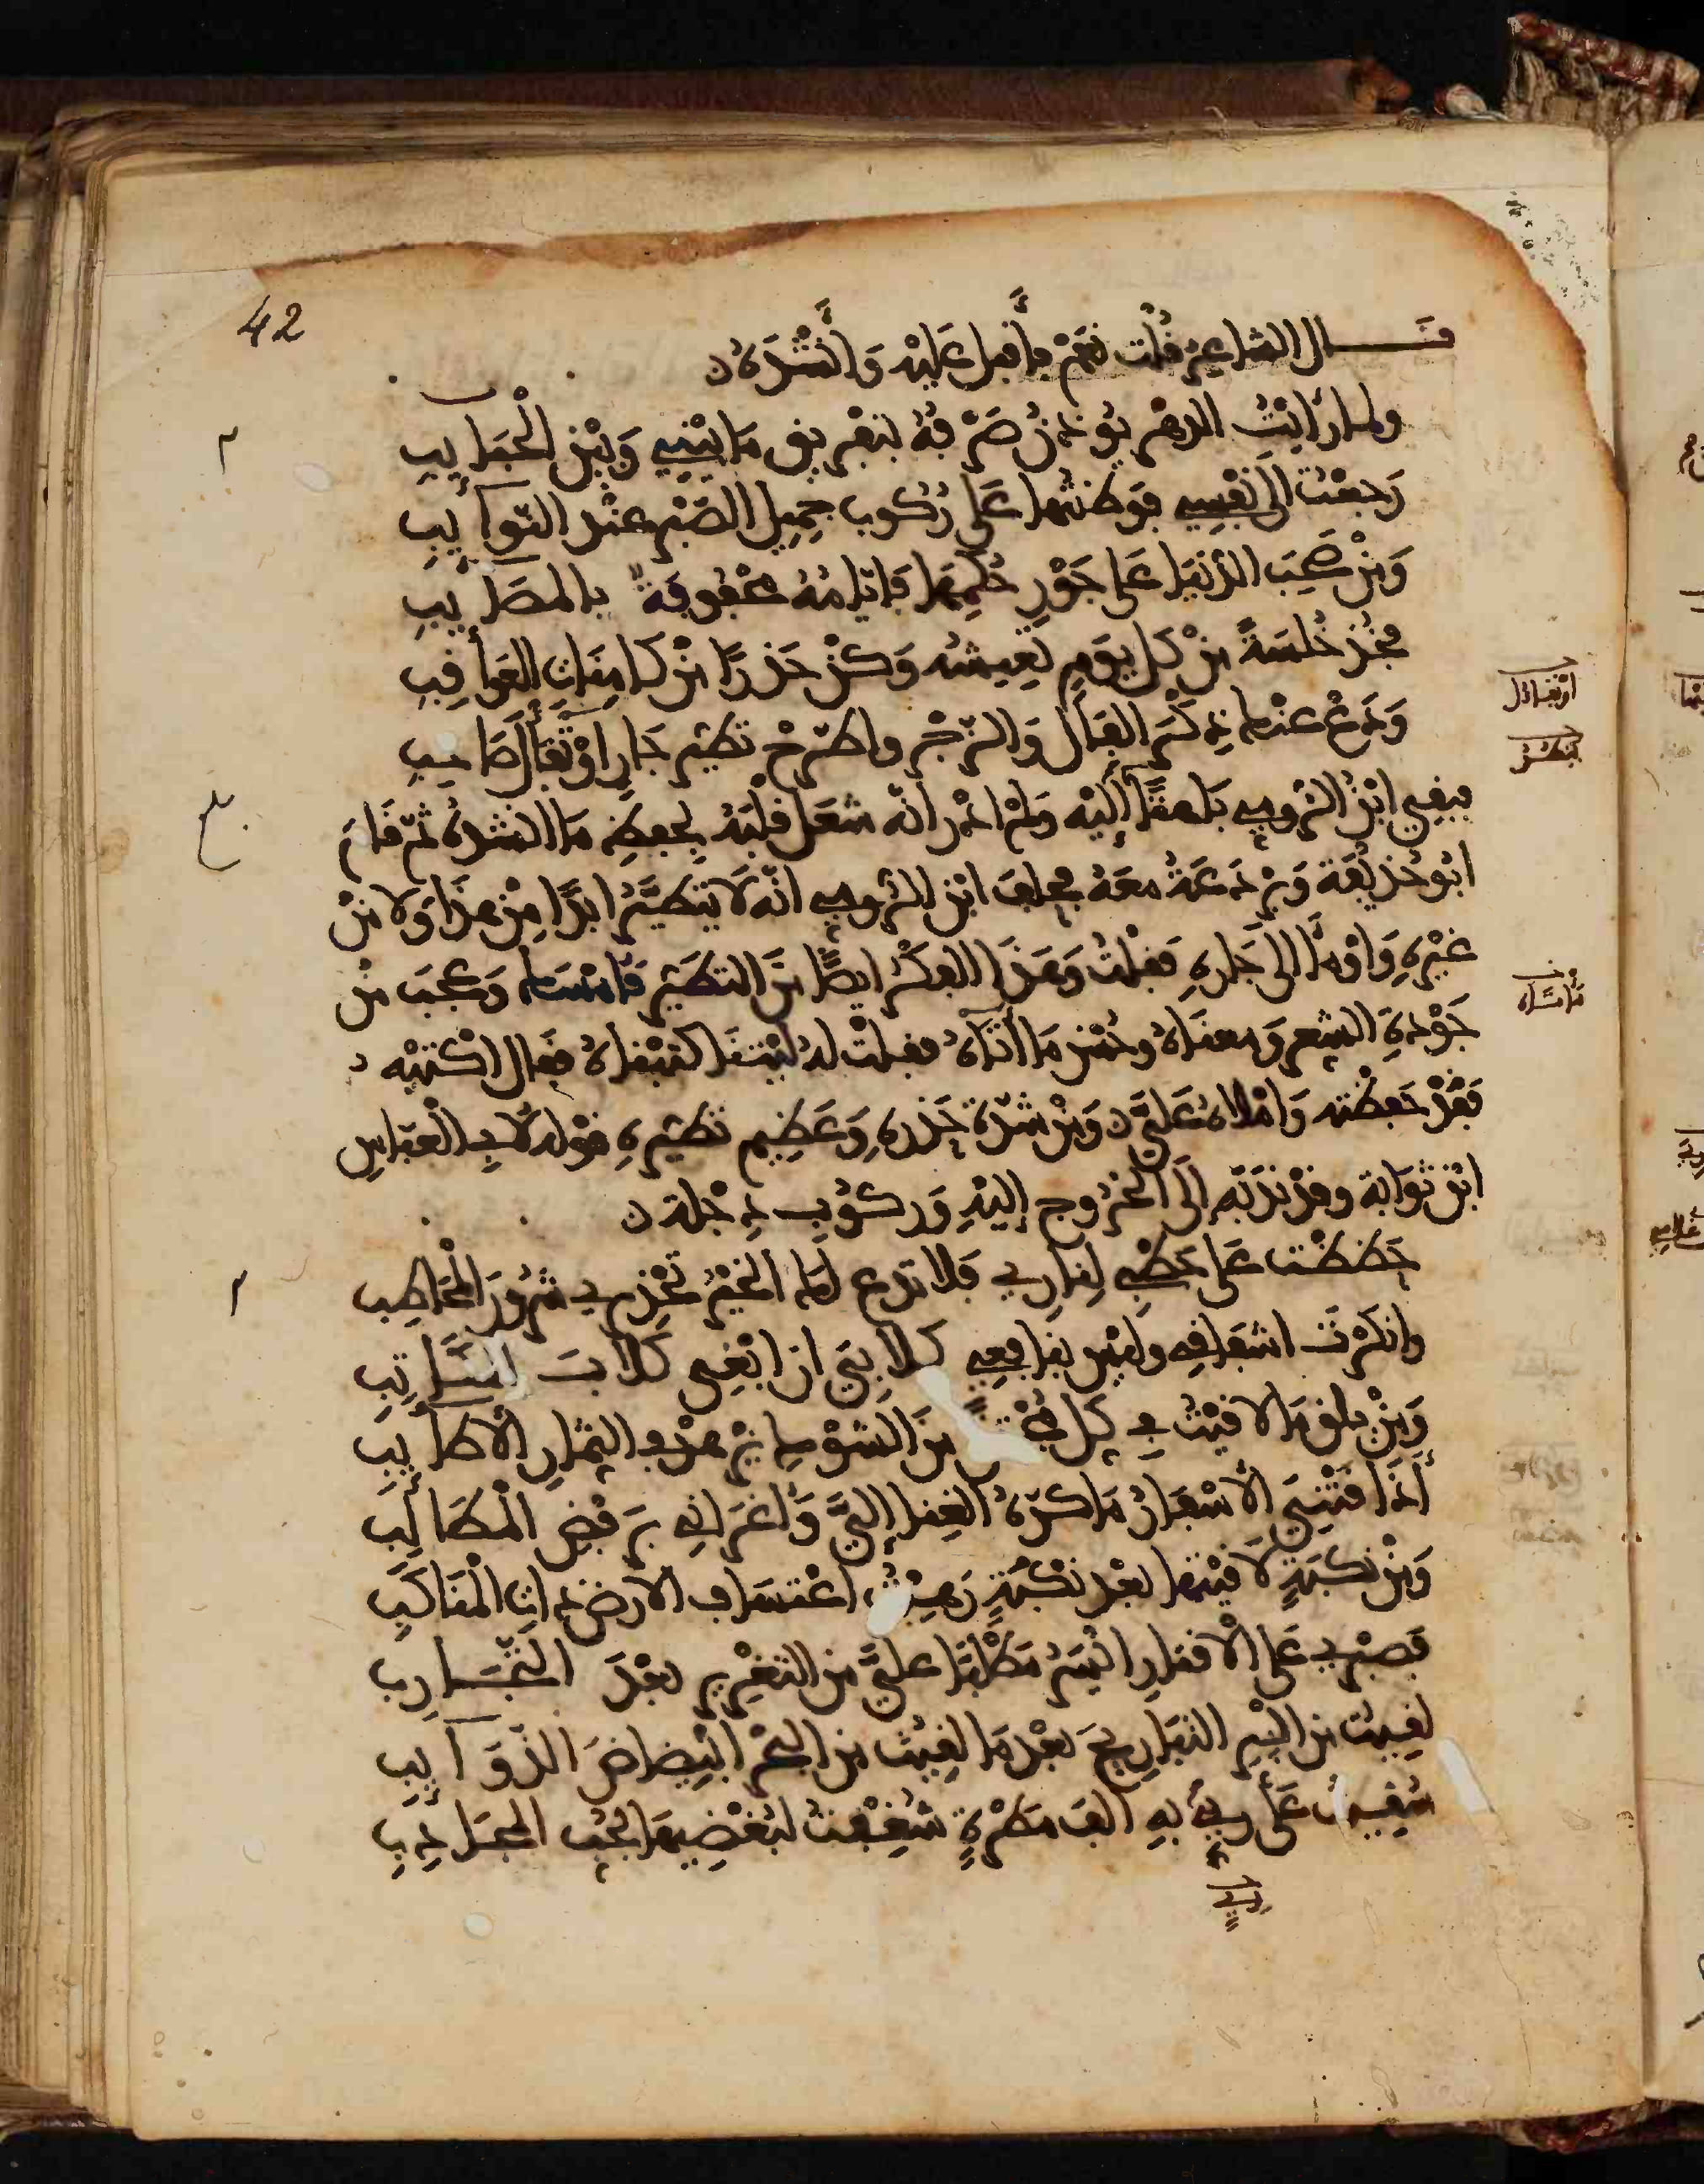 42
قال الشاعر قُلت نَعَمْ فأقبل عَلَيْه وَأنْشَدَهُ
ولما رَأيْتُ الدهْر يُؤذنُ صَرْفهُ بتفْريق مَا بَيْنِي وَبَيْن الْحَبَايِبِ
رَجعْتُ الى نَفْسِي فوَطنتُها عَلى رُكُوب جمِيل الصَّبْرِ عنْد النّوآيِبِ
وَمَنْ صَحِبَ الدُّنْيَا عَلى جَوْرِ حُكمِهَا فَايّامُهُ محْفُوفَةٌ بالمَصَايِبِ
فخُذ خُلسَةً مِنْ كل يَوْم تعِيشُه وَكُنْ حَذِرًا مِنْ كامِنَاتِ العَوَاقِبِ
وَدَعْ عنْك ذِكْرَ الفَالِ وَالزّجْرِ واطّرِحْ تطَيّر جَارٍ اوْ تَفَأّل صَاحِبِ
فبقِي ابْنُ الرُّومِي بَاهتًا إليْه وَلمْ ادْرِ انّه شغَلَ قلْبَهُ بحِفظِ مَا انشدهُ ثمّ قَامَ
ابُو حُذيْفَة وَبرْذعَةُ معَهُ فحلفَ ابْن الرُّومِي انّه لا يَتطَيَّرُ ابدًا مِنْ هذَا وَلا مِنْ
غيْرِهِ وَاوْمَأ الى جَارِهِ فقلْتُ وَهَذَا الفِكْرُ ايضًا مِنَ التطَيّر فَامْسَك وَعَجبَ مِنْ
جَوْدةِ الشِعر وَمعنَاهُ وحُسْن مَا أتَاهُ فقلْت لهُ ليْتنَا كتبْناهُ فقال اكْتبْه
فَقدْ حَفِظْته وَامْلاهُ عَليَّ وَمِنْ شدّة حَذرِه وَعَظِيم تطَيّره قوْله لأبي العبّاسِ
ابْن ثوَابة وقدْ ندَبَه إلى الخُرُوج إليْهِ وَرُكُوب دِجْلة
حَضَضْتَ عَلى حَطْبِي لِنارِي فَلا تدَع لك الخيْرُ تَحْذِيري شُرُورَ المُحَاطِبِ
وانكَرْتَ اشفَاقِي وليْس بمَانِعِي كلابي ان ابْغي كلابَ
وَمَنْ يلقَ مَا لاقيْتُ في كل مِنَ الشوْكِ يزْهدْ في الثمَارِ الأطَايِبِ
أذَاقتْنِيَ الأسْفَارُ مَا كرّهَ الغِنا إليَّ وَأغرَاني برفْضِ الْمطَالِبِ
وَمِنْ نكبَةٍ لاقيْتها بعْد نكْبَةٍ رَهبْتُ اعْتسَاف الأرض ذات المَنَاكبِ
فَصبْري عَلى الإقتارِ ايْسَرُ مَطْلبًا عليَّ من التغْرير بعْدَ التجَارِبِ
لقيتُ من البَرِّ التبَارِيحَ بعْد مَا لقيتُ من البحْر ابْيضاضَ الذّوَآيِبِ
سُقِيتُ عَلى رِيّ بهِ الفَ مَطْرةٍ شُغِفْتُ لبُغْضِيهَا بحُبّ المجَادِبِ
او تفاؤل